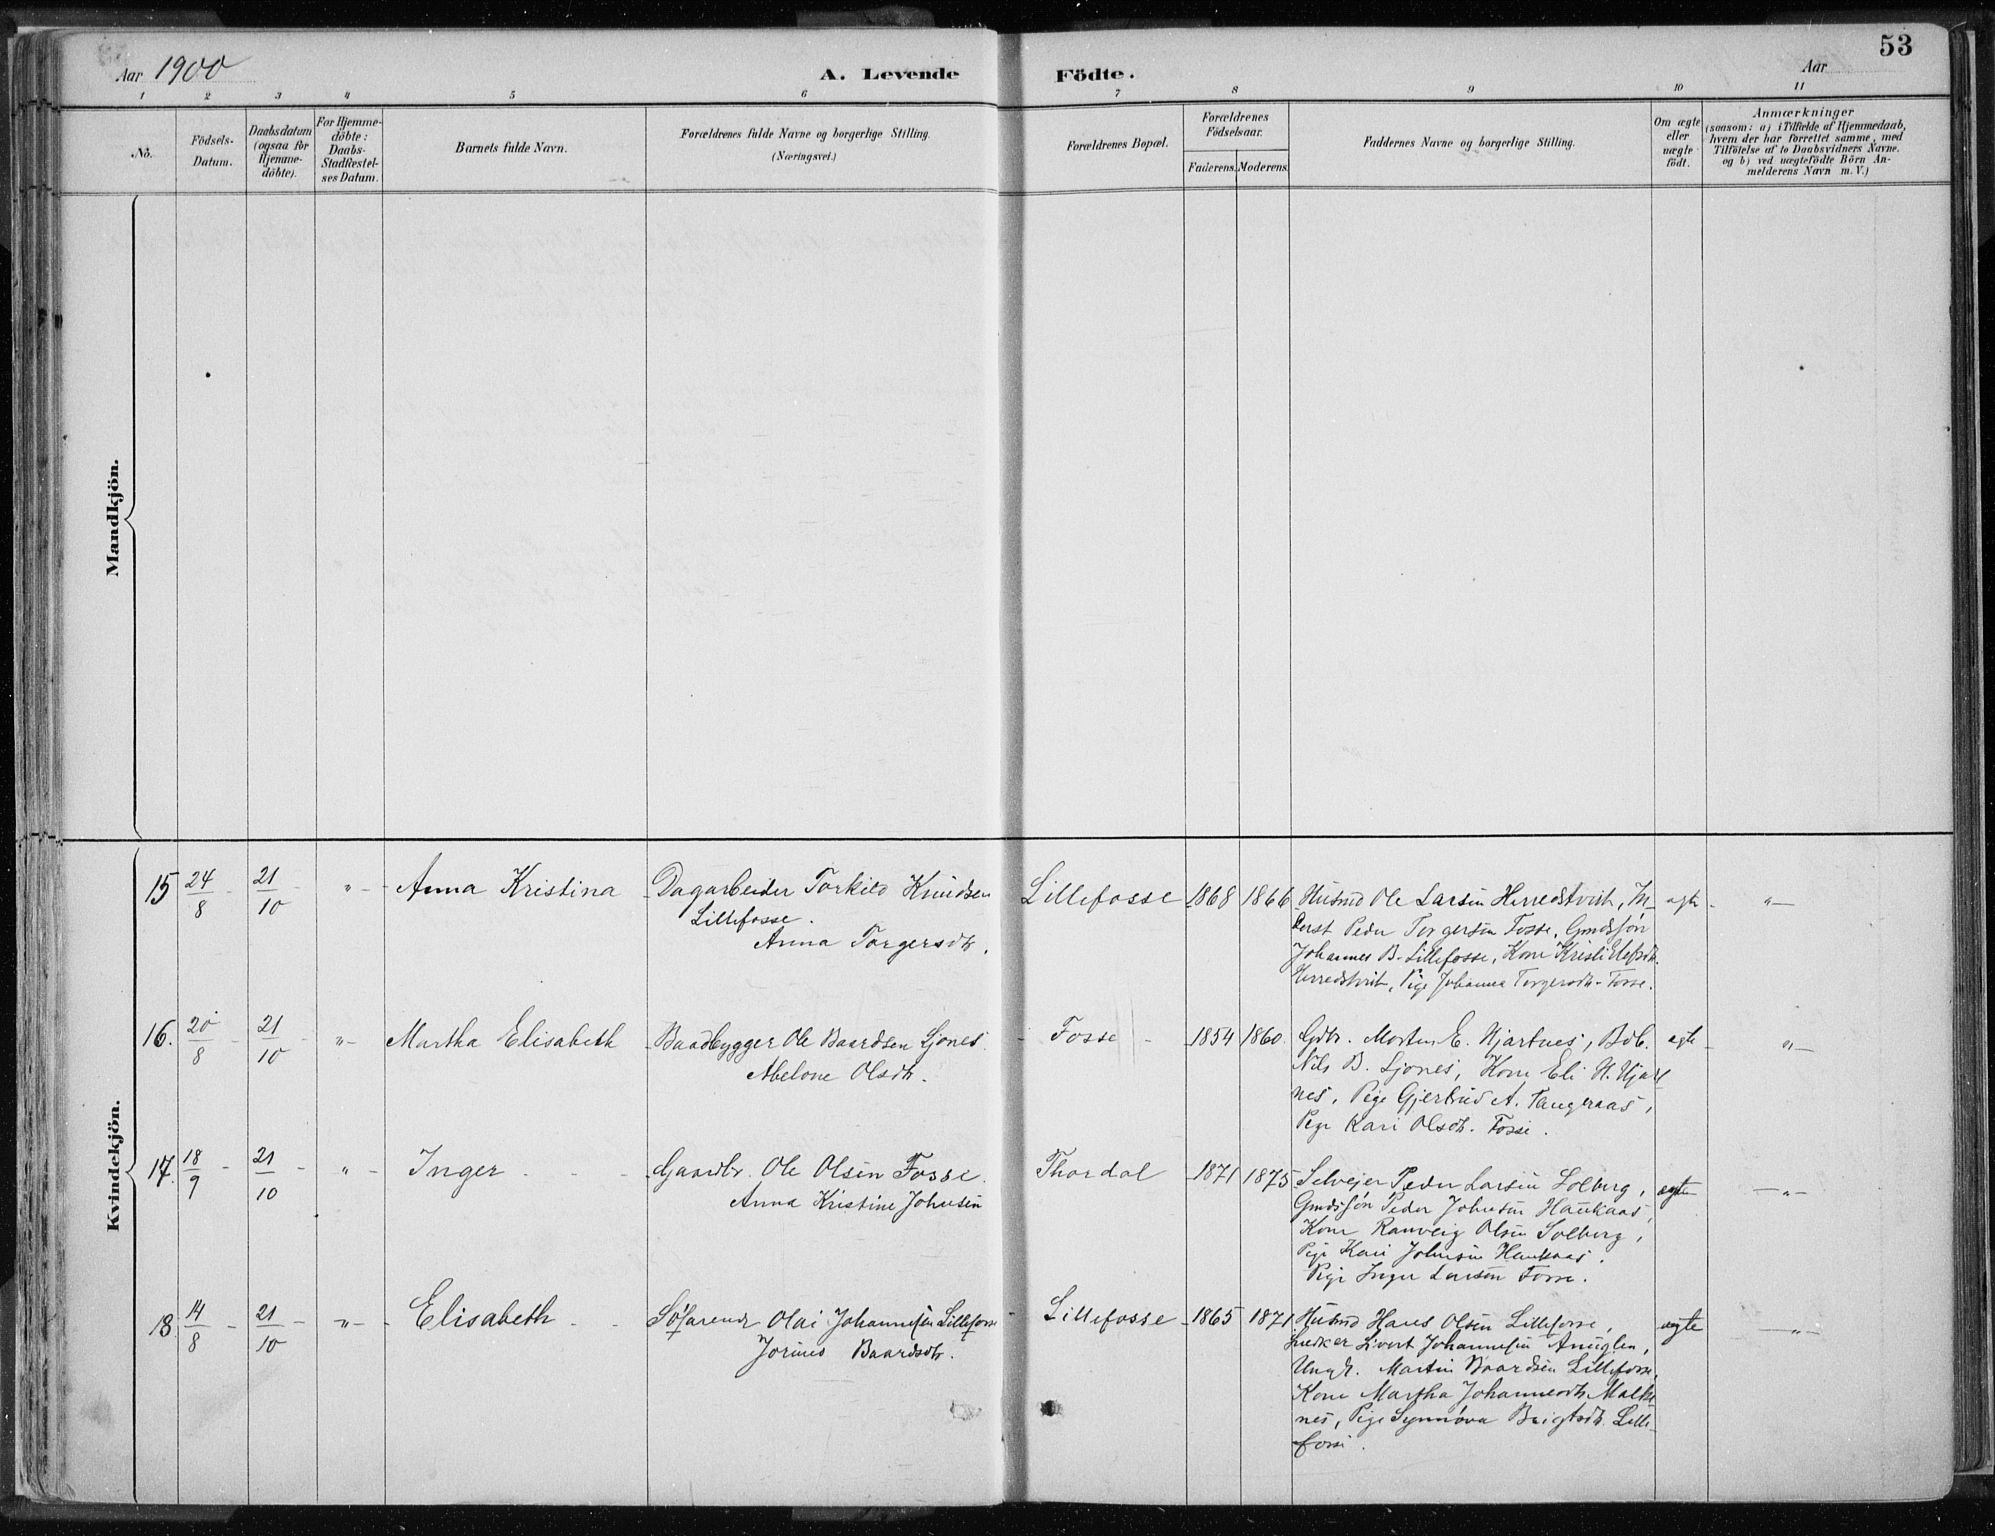 53
Aar 1900
A. Levende Födte.
Aar
1 2 3 4 5 6 7 8 9 10 11
No.
Födsels-
Datum.
Daabsdatum
(ogsaa for
Hjemme-
döbte).
For Hjemme-
döbte:
Daabs-
Stadfæstel-
ses Datum.
Barnets fulde Navn.
Forældrenes fulde Navne og borgerlige Stilling.
(Næringsvei.)
Forældrenes Bopæl.
Forældrenes
Födselsaar.
Faderens. Moderens.
Faddernes Navne og borgerlige Stilling.
Om ægte
eller
uægte
födt.
Anmærkninger
(saasom: a) i Tilfælde af Hjemmedaab,
hvem der har forrettet samme, med
Tilföielse af to Daabsvidners Navne.
og b) ved uægtefödte Börn An-
melderens Navn m. V.)
Mandkjön.
Kvindekjön.
15 24/8 - 21/10 - " - Anna Kristina
Dagarbeider Torkild Knudsen
Lillefosse.
Anna Torgersdtr.
Lillefosse 1868 1866
Husmd Ole Larsen Herredstvist,
Peder Torgersen Fosse, Gmdssøn
Johannes B. Lillefosse, Kone Kristi
Herredstvist, Pige Johanna Torgersdtr. Fosse.
ægte - " -
16. 20/8 - 21/10 - " - Martha Elisabeth
Baadbygger Ole Baardsen Ljones
Abelone Olsdtr.
Fosse - 1854 1860
Gdbr. Morten E. Hjartnes, Bdb.
Nils B. Ljones, Kone Eli H. Hjart-
nes, Pige Gjertrud A. Tangeraas,
Pige Kari Olsdtr. Fosse.
ægte - " -
17. 18/9 - 21/10 - " - Inger
Gaardbr. Ole Olsen Fosse.
Anna Kristine Johnsen
Thordal 1871 1875
Selveier Peder Larsen Solberg,
Gmdssøn Peder Johnsen Haukaas,
Kone Ranveig Olsen Solberg,
Pige Kari Johnsen Haukaas.
Pige Inger Larsen Fosse.
ægte - " -
18. 14/8 - 21/10 - " - Elisabeth
Søfarende Olai Johannesen Lillefosse
Jorine Baardsdtr.
Lillefosse 1865 1871
Husmd Hans Olsen Lillefosse,
Snedker Sivert Johannesen Anuglen,
Ungk. Martin Baardsen Lillefosse,
Kone Martha Johannesdtr Malke-
nes, Pige Synnøva Brigtsdtr. Lille-
fosse.
ægte - " -